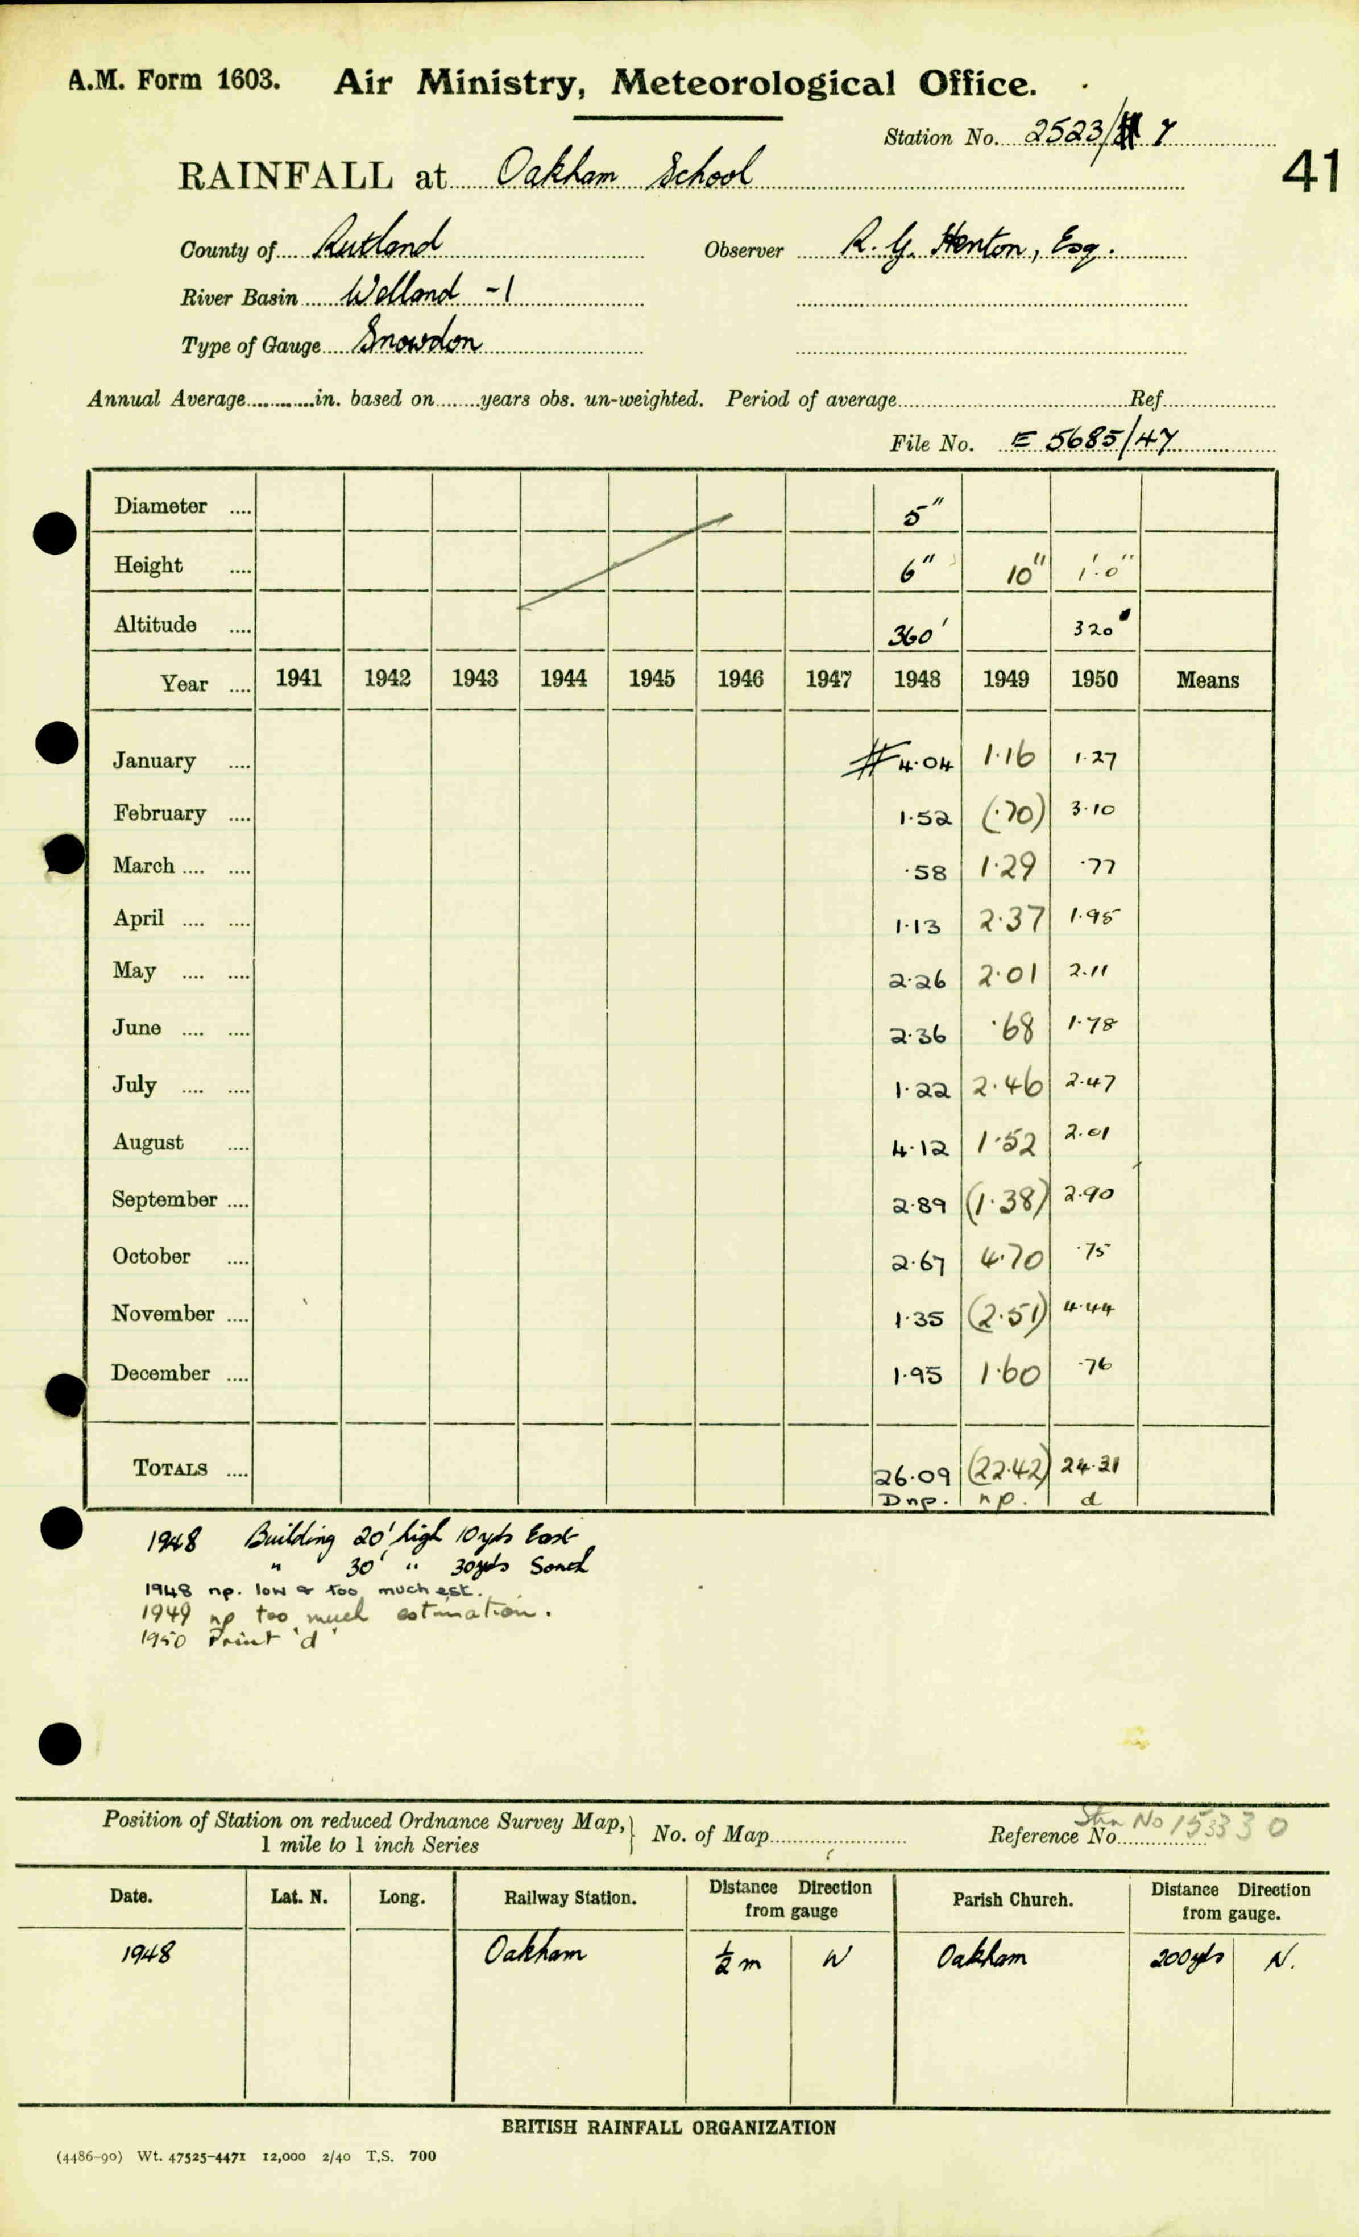 A.M. Form 1603. Air Ministry, Meteorological Office.
Station No. 2523/ 7
41
RAINFALL at Oakham School
County of Rutland Observer R. G. Henton, Esq.
River Basin Welland -1
Type of Gauge Snowdon
Annual Average............in. based on........years obs. un-weighted. Period of average.......... Ref..........
File No. E 5685/47
Diameter .... 5"
Height .... 6" 10" 1'.0"
Altitude .... 360' 320'
Year .... 1941 1942 1943 1944 1945 1946 1947 1948 1949 1950 Means
January .... # 4.04 1.16 1.27
February .... 1.52 (.70) 3.10
March .... .... .58 1.29 .77
April .... .... 1.13 2.37 1.95
May .... .... 2.26 2.01 2.11
June .... .... 2.36 .68 1.78
July .... .... 1.22 2.46 2.47
August .... 4.12 1.52 2.01
September .... 2.89 (1.38) 2.90
October .... 2.67 4.70 .75
November .... 1.35 (2.51) 4.44
December .... 1.95 1.60 .76
TOTALS .... 26.09 (22.42) 24.31
Dnp. np. d
1948 Building 20' high 10yds East
" 30' " 30yds South
1948 np. low & too much est.
1949 np too much estimation.
1950 Print 'd'
Position of Station on reduced Ordnance Survey Map, 1 mile to 1 inch Series } No. of Map.......... Reference No..........
Stn No 153330
Date. Lat. N. Long. Railway Station. Distance Direction from gauge Parish Church. Distance Direction from gauge.
1948 Oakham ½ m W Oakham 200yds N.
BRITISH RAINFALL ORGANIZATION
(4486-90) Wt. 47525-4471 12,000 2/40 T.S. 700